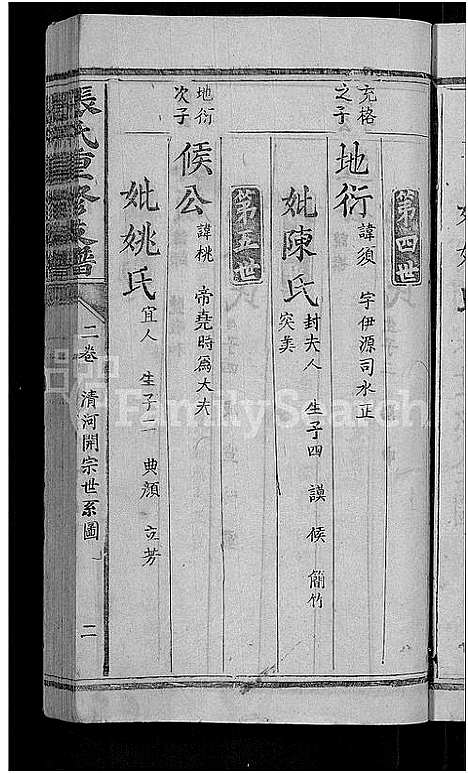 第四世
充格之子
地衍 諱須 字伊源司水正
妣陳氏 封夫人 生子四 謨 候 簡 竹
突美
第五世
地衍次子
候公 諱桃 帝堯時為大夫
妣姚氏 宜人 生子二 典顏 立芳
張氏重修支譜
二卷 清河開宗世系圖 二
FamilySearch